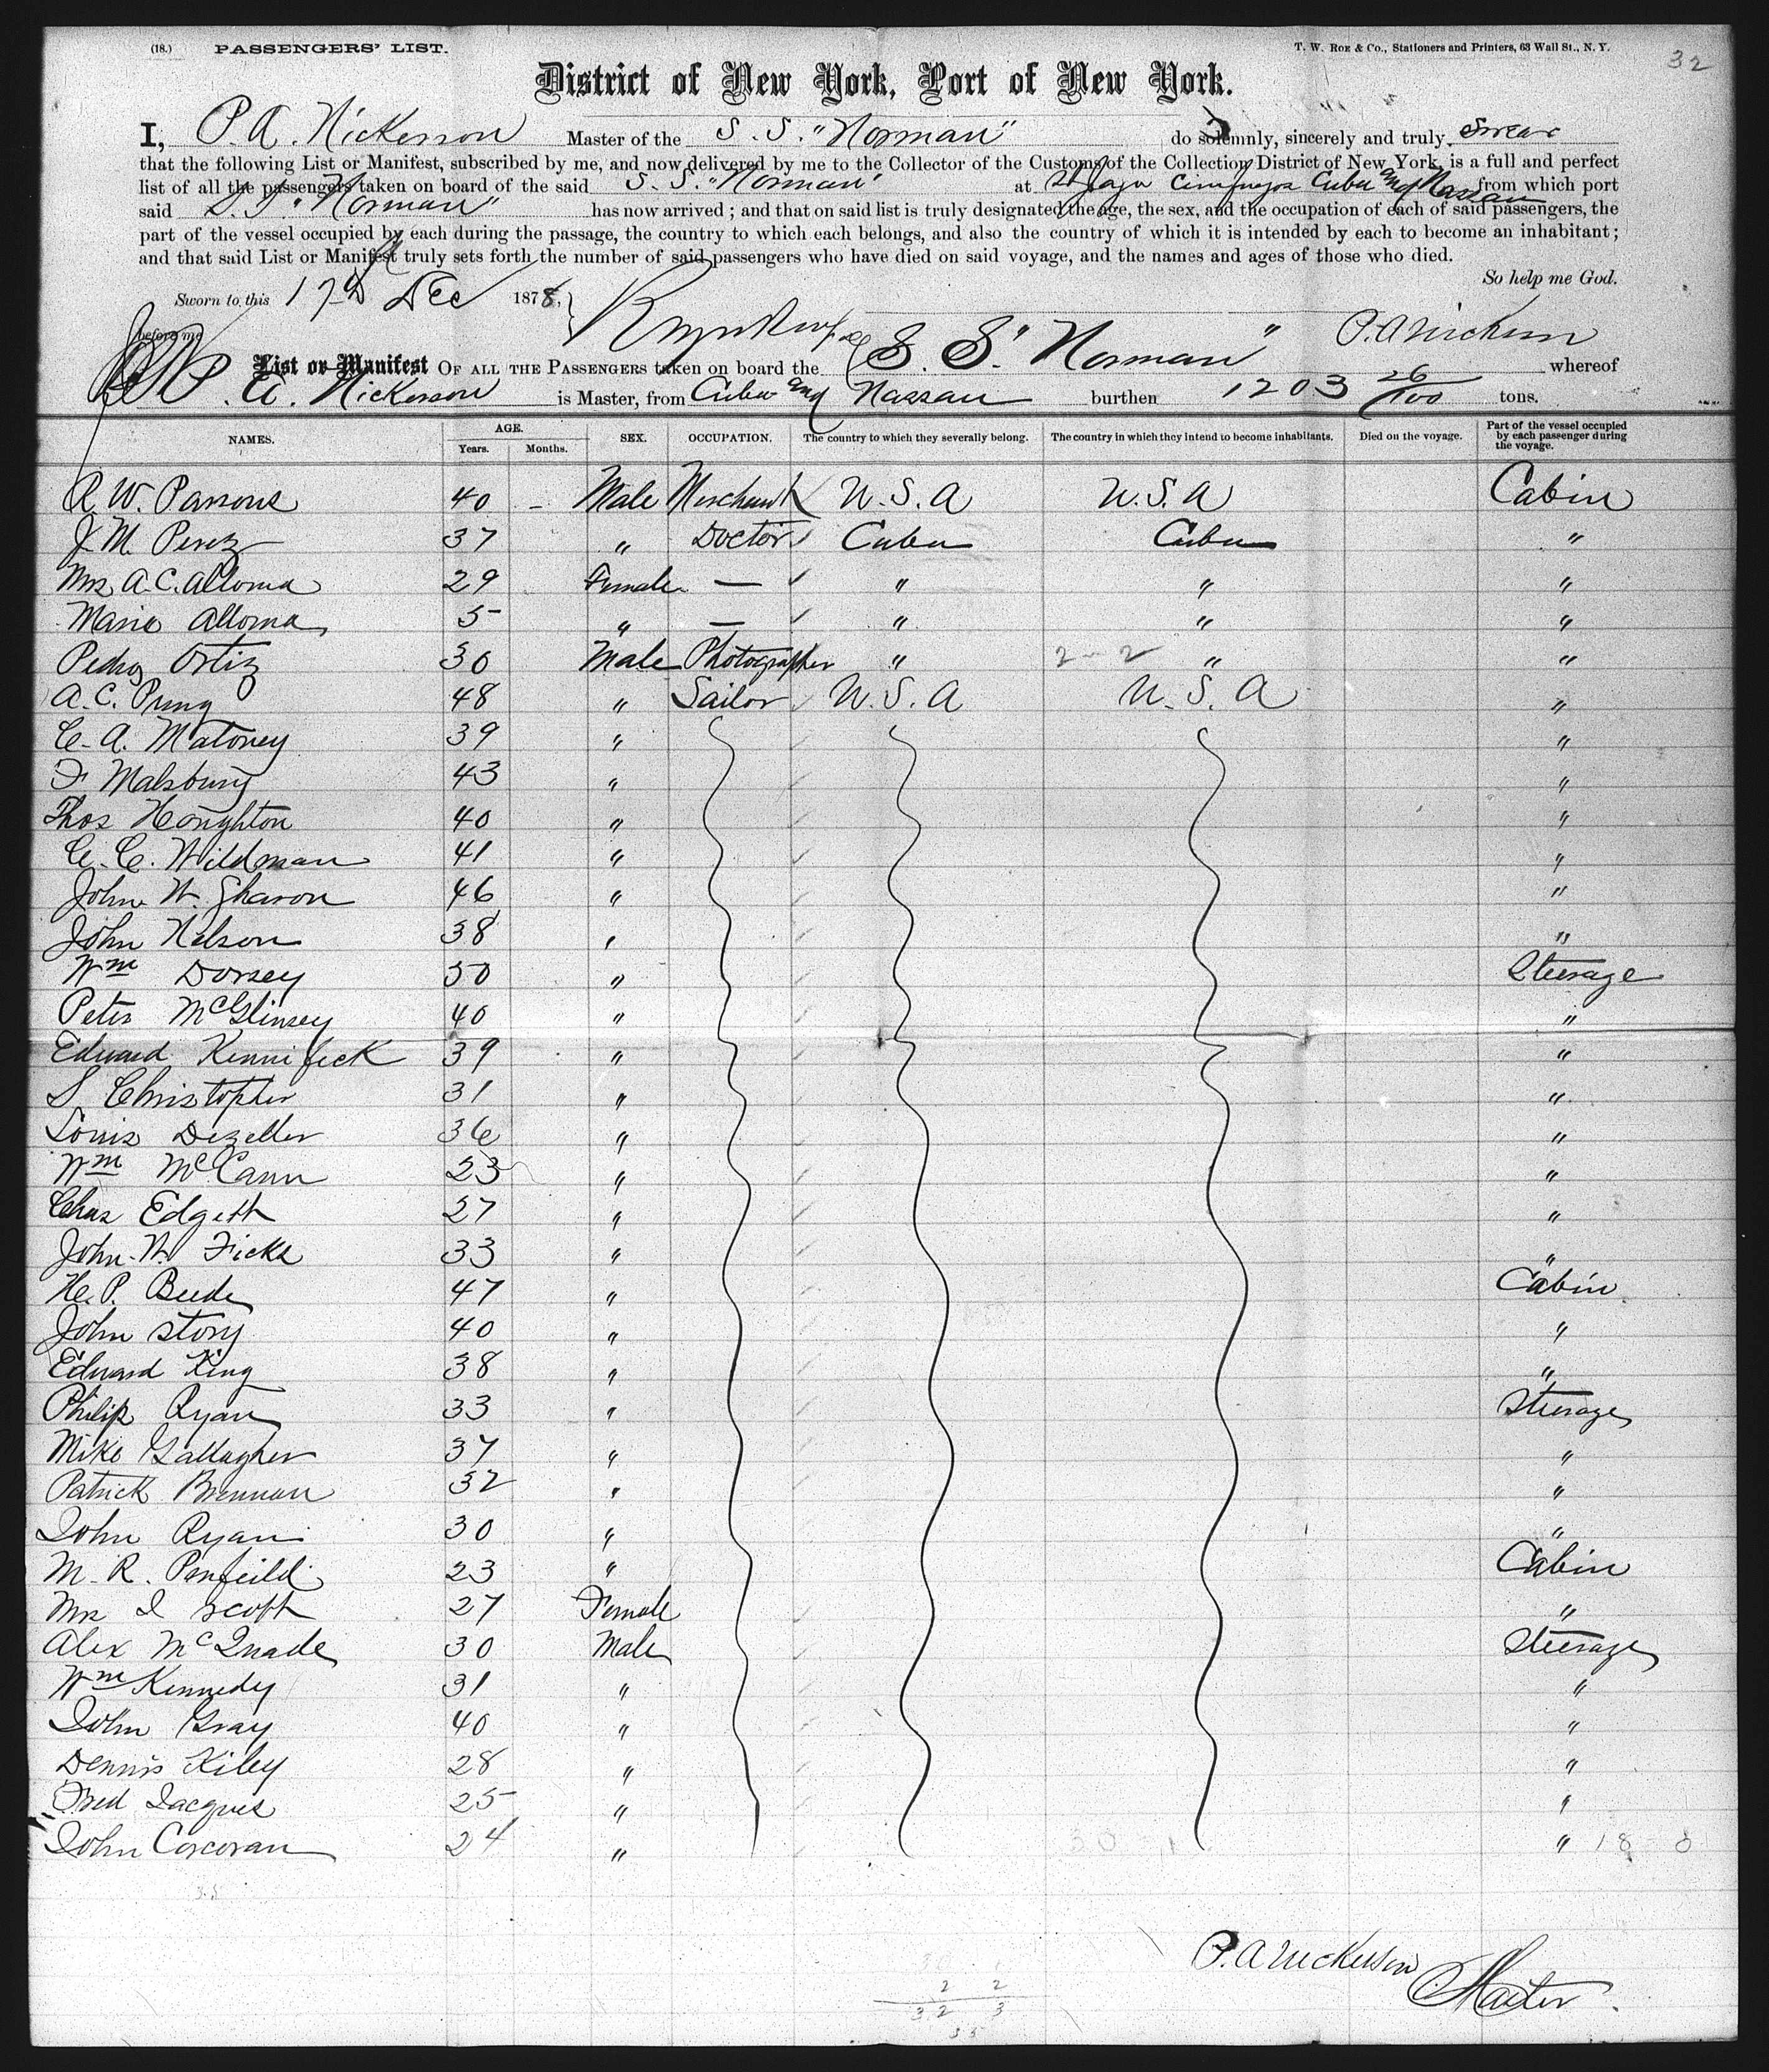 (18.) PASSENGERS' LIST. T. W. ROE & Co., Stationers and Printers, 63 Wall St., N. Y. 32
District of New York, Port of New York.
I, P. A. Nickerson Master of the S. S. "Norman" do solemnly, sincerely and truly swear
that the following List or Manifest, subscribed by me, and now delivered by me to the Collector of the Customs of the Collection District of New York, is a full and perfect
list of all the passengers taken on board of the said S. S. "Norman" at St Jago Cinfuegos Cuba and Nassau from which port
said S. S. "Norman" has now arrived; and that on said list is truly designated the age, the sex, and the occupation of each of said passengers, the
part of the vessel occupied by each during the passage, the country to which each belongs, and also the country of which it is intended by each to become an inhabitant;
and that said List or Manifest truly sets forth the number of said passengers who have died on said voyage, and the names and ages of those who died.
So help me God.
Sworn to this 17th Dec 1878,
before me P. A. Nickerson
List or Manifest OF ALL THE PASSENGERS taken on board the S. S. "Norman" whereof
P. A. Nickerson is Master, from Cuba and Nassau burthen 1203 26/100 tons.
NAMES. AGE. Years. Months. SEX. OCCUPATION. The country to which they severally belong. The country in which they intend to become inhabitants. Died on the voyage. Part of the vessel occupied by each passenger during the voyage.
R. W. Parsons 40 - Male Merchant U.S.A U.S.A Cabin
J. M. Perez 37 " Doctor Cuba Cuba "
Mrs A. C. Alloma 29 Female — " " "
Marie Alloma 5 " — " " "
Pedro Ortiz 30 Male Photographer " 2 - 2 " "
A. C. Pring 48 " Sailor U.S.A U.S.A "
C. A. Matoney 39 " "
F Malsbury 43 " "
Thos Houghton 40 " "
C. C. Wildman 41 " "
John W. Sharon 46 " "
John Nelson 38 " "
Wm Dorsey 50 " Steerage
Peter McGlinsey 40 " "
Edward Kennifeck 39 " "
S Christopher 31 " "
Louis Dezeller 36 " "
Wm McCann 23 " "
Chas Edgett 27 " "
John W. Ficks 33 " "
H. P. Beede 47 " Cabin
John Story 40 " "
Edward King 38 " "
Philip Ryan 33 " Steerage
Mike Gallagher 37 " "
Patrick Brennan 32 " "
John Ryan 30 " "
M. R. Penfeild 23 " Cabin
Mrs I Scott 27 Female "
Alex McQuade 30 Male Steerage
Wm Kennedy 31 " "
John Gray 40 " "
Dennis Kiley 28 " "
Fred Jacques 25 " "
John Corcoran 24 " " 18
35
P. A Nickerson
Master
2 2
32 3
35